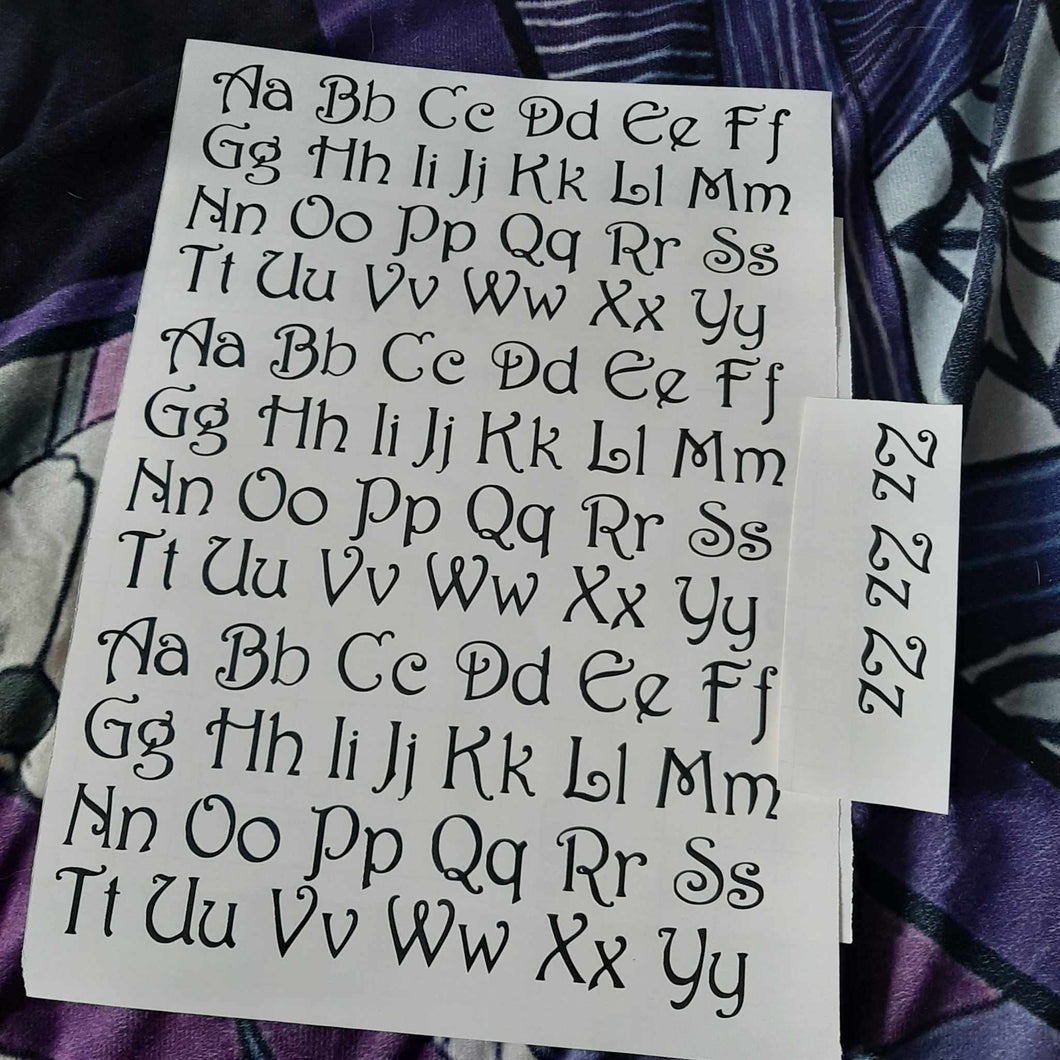 Aa Bb Cc Dd Ee Ff
Gg Hh Ii Jj Kk Ll Mm
Nn Oo Pp Qq Rr Ss
Tt Uu Vv Ww Xx Yy
Aa Bb Cc Dd Ee Ff
Gg Hh Ii Jj Kk Ll Mm
Nn Oo Pp Qq Rr Ss
Tt Uu Vv Ww Xx Yy
Aa Bb Cc Dd Ee Ff
Gg Hh Ii Jj Kk Ll Mm
Nn Oo Pp Qq Rr Ss
Tt Uu Vv Ww Xx Yy
Zz Zz Zz